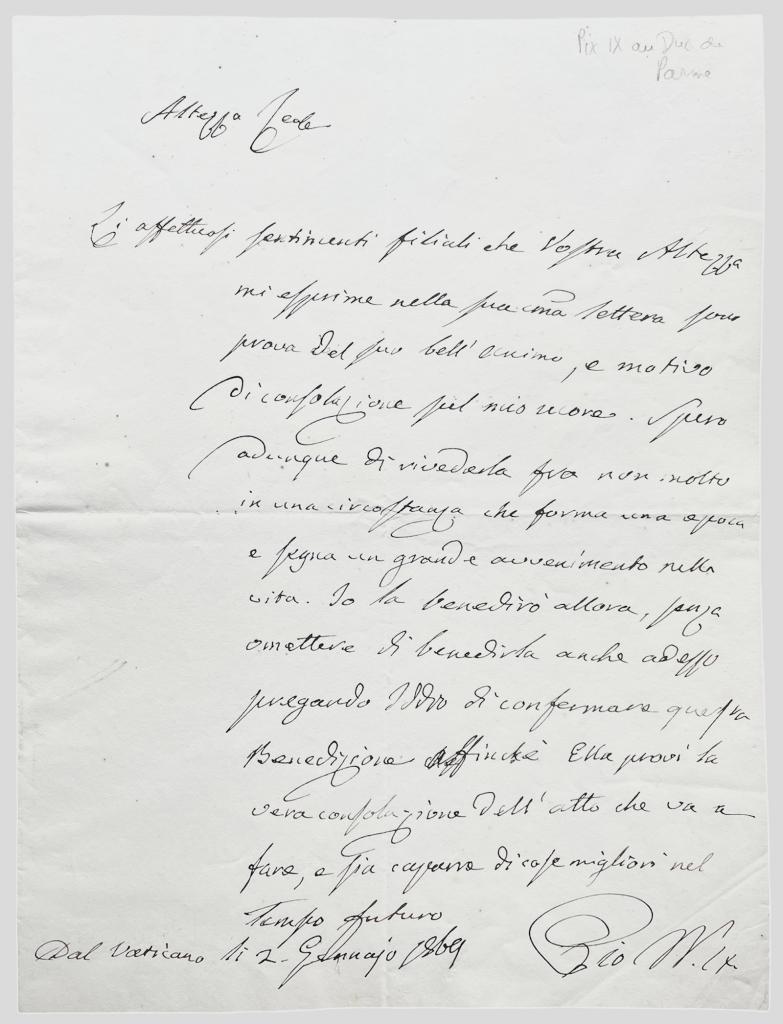 Pix IX au Duc de
Parme
Altezza Reale
Gli affettuosi sentimenti filiali che Vostra Altezza
mi esprime nella sua lettera sono
prova del suo bell' animo, e motivo
di consolazione pel mio cuore. Spero
adunque di rivederla fra non molto
in una circostanza che forma una epoca
e segna un grande avvenimento nella
vita. Io la benedirò allora, senza
omettere di benedirla anche adesso
pregando Iddio di confermare questa
Benedizione affinchè Ella provi la
vera consolazione dell' atto che va a
fare, e sia caparra di cose migliori nel
tempo futuro
Dal Vaticano li 2. Gennajo 1869
Pio PP. IX.